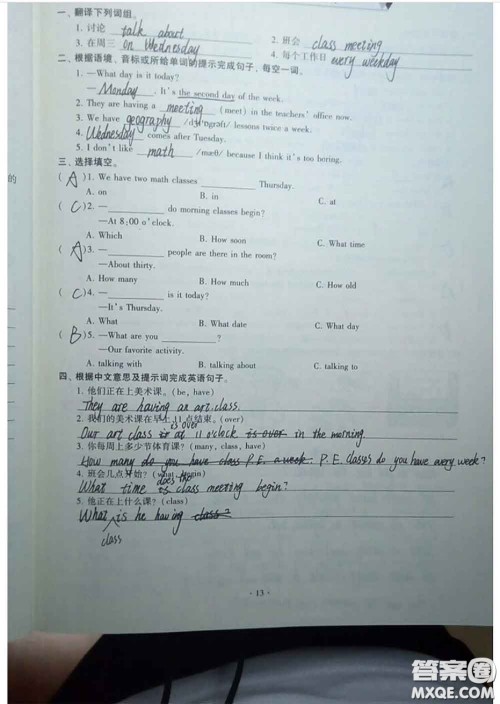 一、翻译下列词组。
1. 讨论 talk about 2. 班会 class meeting
3. 在周三 on Wednesday 4. 每个工作日 every weekday
二、根据语境、音标或所给单词的提示完成句子，每空一词。
1. —What day is it today?
—Monday. It's the second day of the week.
2. They are having a meeting (meet) in the teachers' office now.
3. We have geography /dʒɪˈɒɡrəfɪ/ lessons twice a week.
4. Wednesday comes after Tuesday.
5. I don't like math /mæθ/ because I think it's too boring.
三、选择填空。
(A)1. We have two math classes ________ Thursday.
A. on B. in C. at
(C)2. —________ do morning classes begin?
—At 8:00 o'clock.
A. Which B. How soon C. What time
(A)3. —________ people are there in the room?
—About thirty.
A. How many B. How much C. How old
(C)4. —________ is it today?
—It's Thursday.
A. What B. What date C. What day
(B)5. —What are you ________?
—Our favorite activity.
A. talking with B. talking about C. talking to
四、根据中文意思及提示词完成英语句子。
1. 他们正在上美术课。(be, have)
They are having an art class.
2. 我们的美术课在早上11点结束。(over)
is over
Our art class is at 11 o'clock is over in the morning.
3. 你每周上多少节体育课? (many, class, have)
How many do you have class P.E. a week. P.E. classes do you have every week?
4. 班会几点开始? (what, begin)
does the
What time is class meeting begin?
5. 他正在上什么课? (class)
What is he having class?
class
· 13 ·
的
答案圈
MXQE.COM